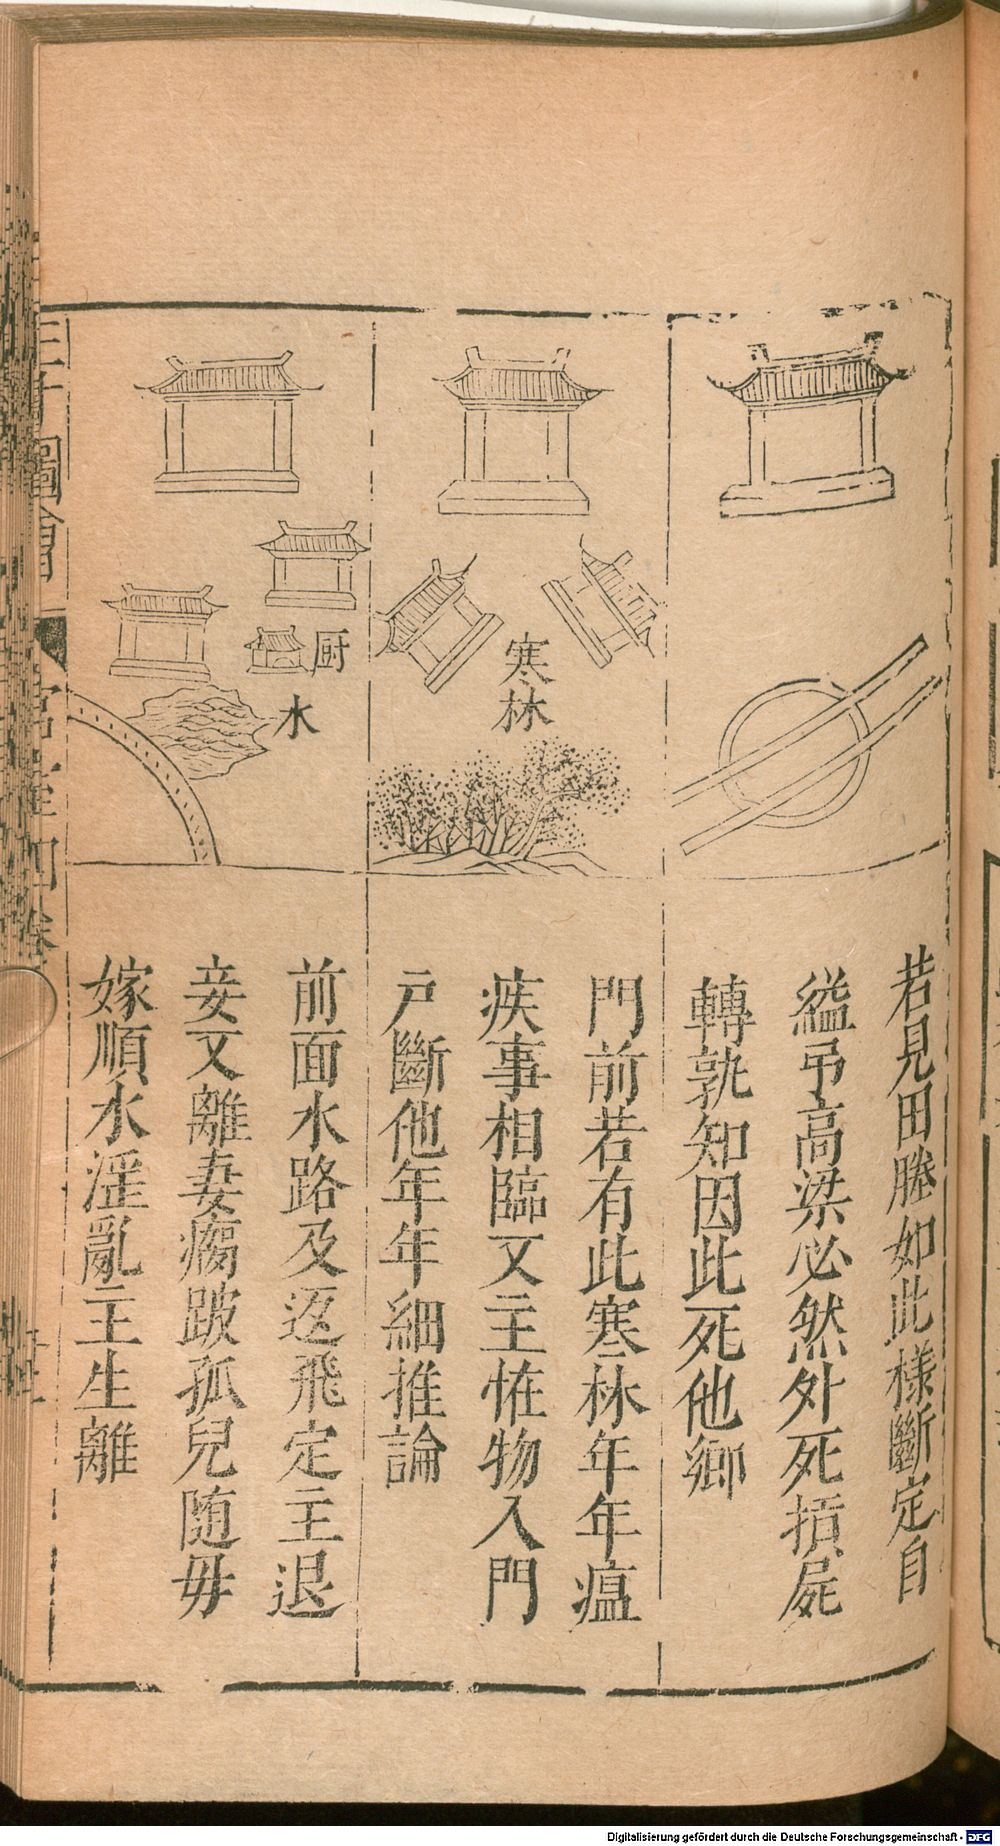 若見田塍如此樣斷定自
縊弔高梁必然外死損屍
轉孰知因此死他鄉
寒林
門前若有此寒林年年瘟
疾事相臨又主恠物入門
戶斷他年年細推論
厨
水
前面水路及返飛定主退
妾又離妻瘸跛孤兒随毋
嫁順水淫亂主生離
圖會
宮室四卷
Digitalisierung gefördert durch die Deutsche Forschungsgemeinschaft - DFG